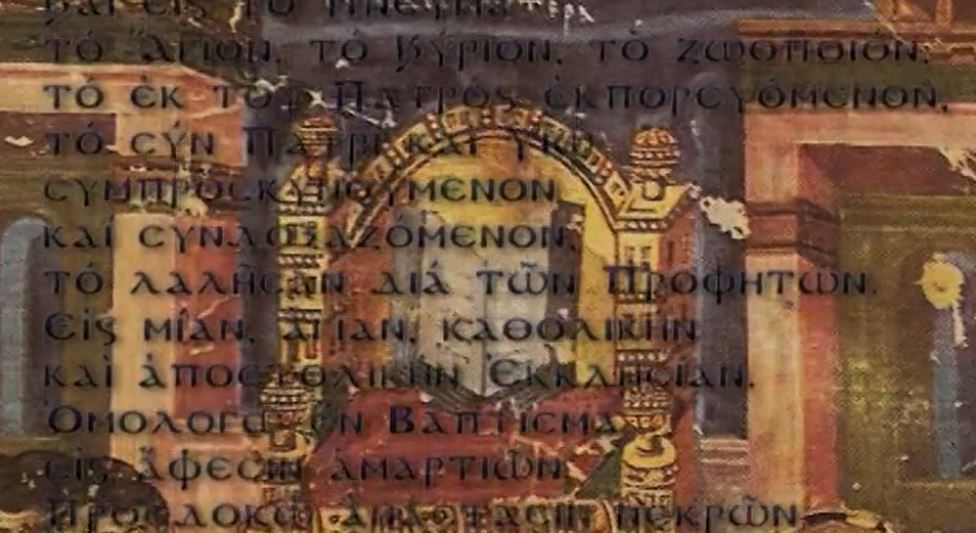 Καί εἰς τό Πνεῦμα
τό Ἅγιον, τό Κύριον, τό Ζωοποιόν,
τό ἐκ τοῦ Πατρός ἐκπορευόμενον,
τό σύν Πατρί καί Υἱῷ
συμπροσκυνούμενον
καί συνδοξαζόμενον,
τό λαλῆσαν διά τῶν Προφητῶν.
Εἰς μίαν, ἁγίαν, καθολικήν
καί ἀποστολικήν Ἐκκλησίαν.
Ὁμολογῶ ἕν Βάπτισμα
εἰς ἄφεσιν ἁμαρτιῶν.
Προσδοκῶ ἀνάστασιν νεκρῶν